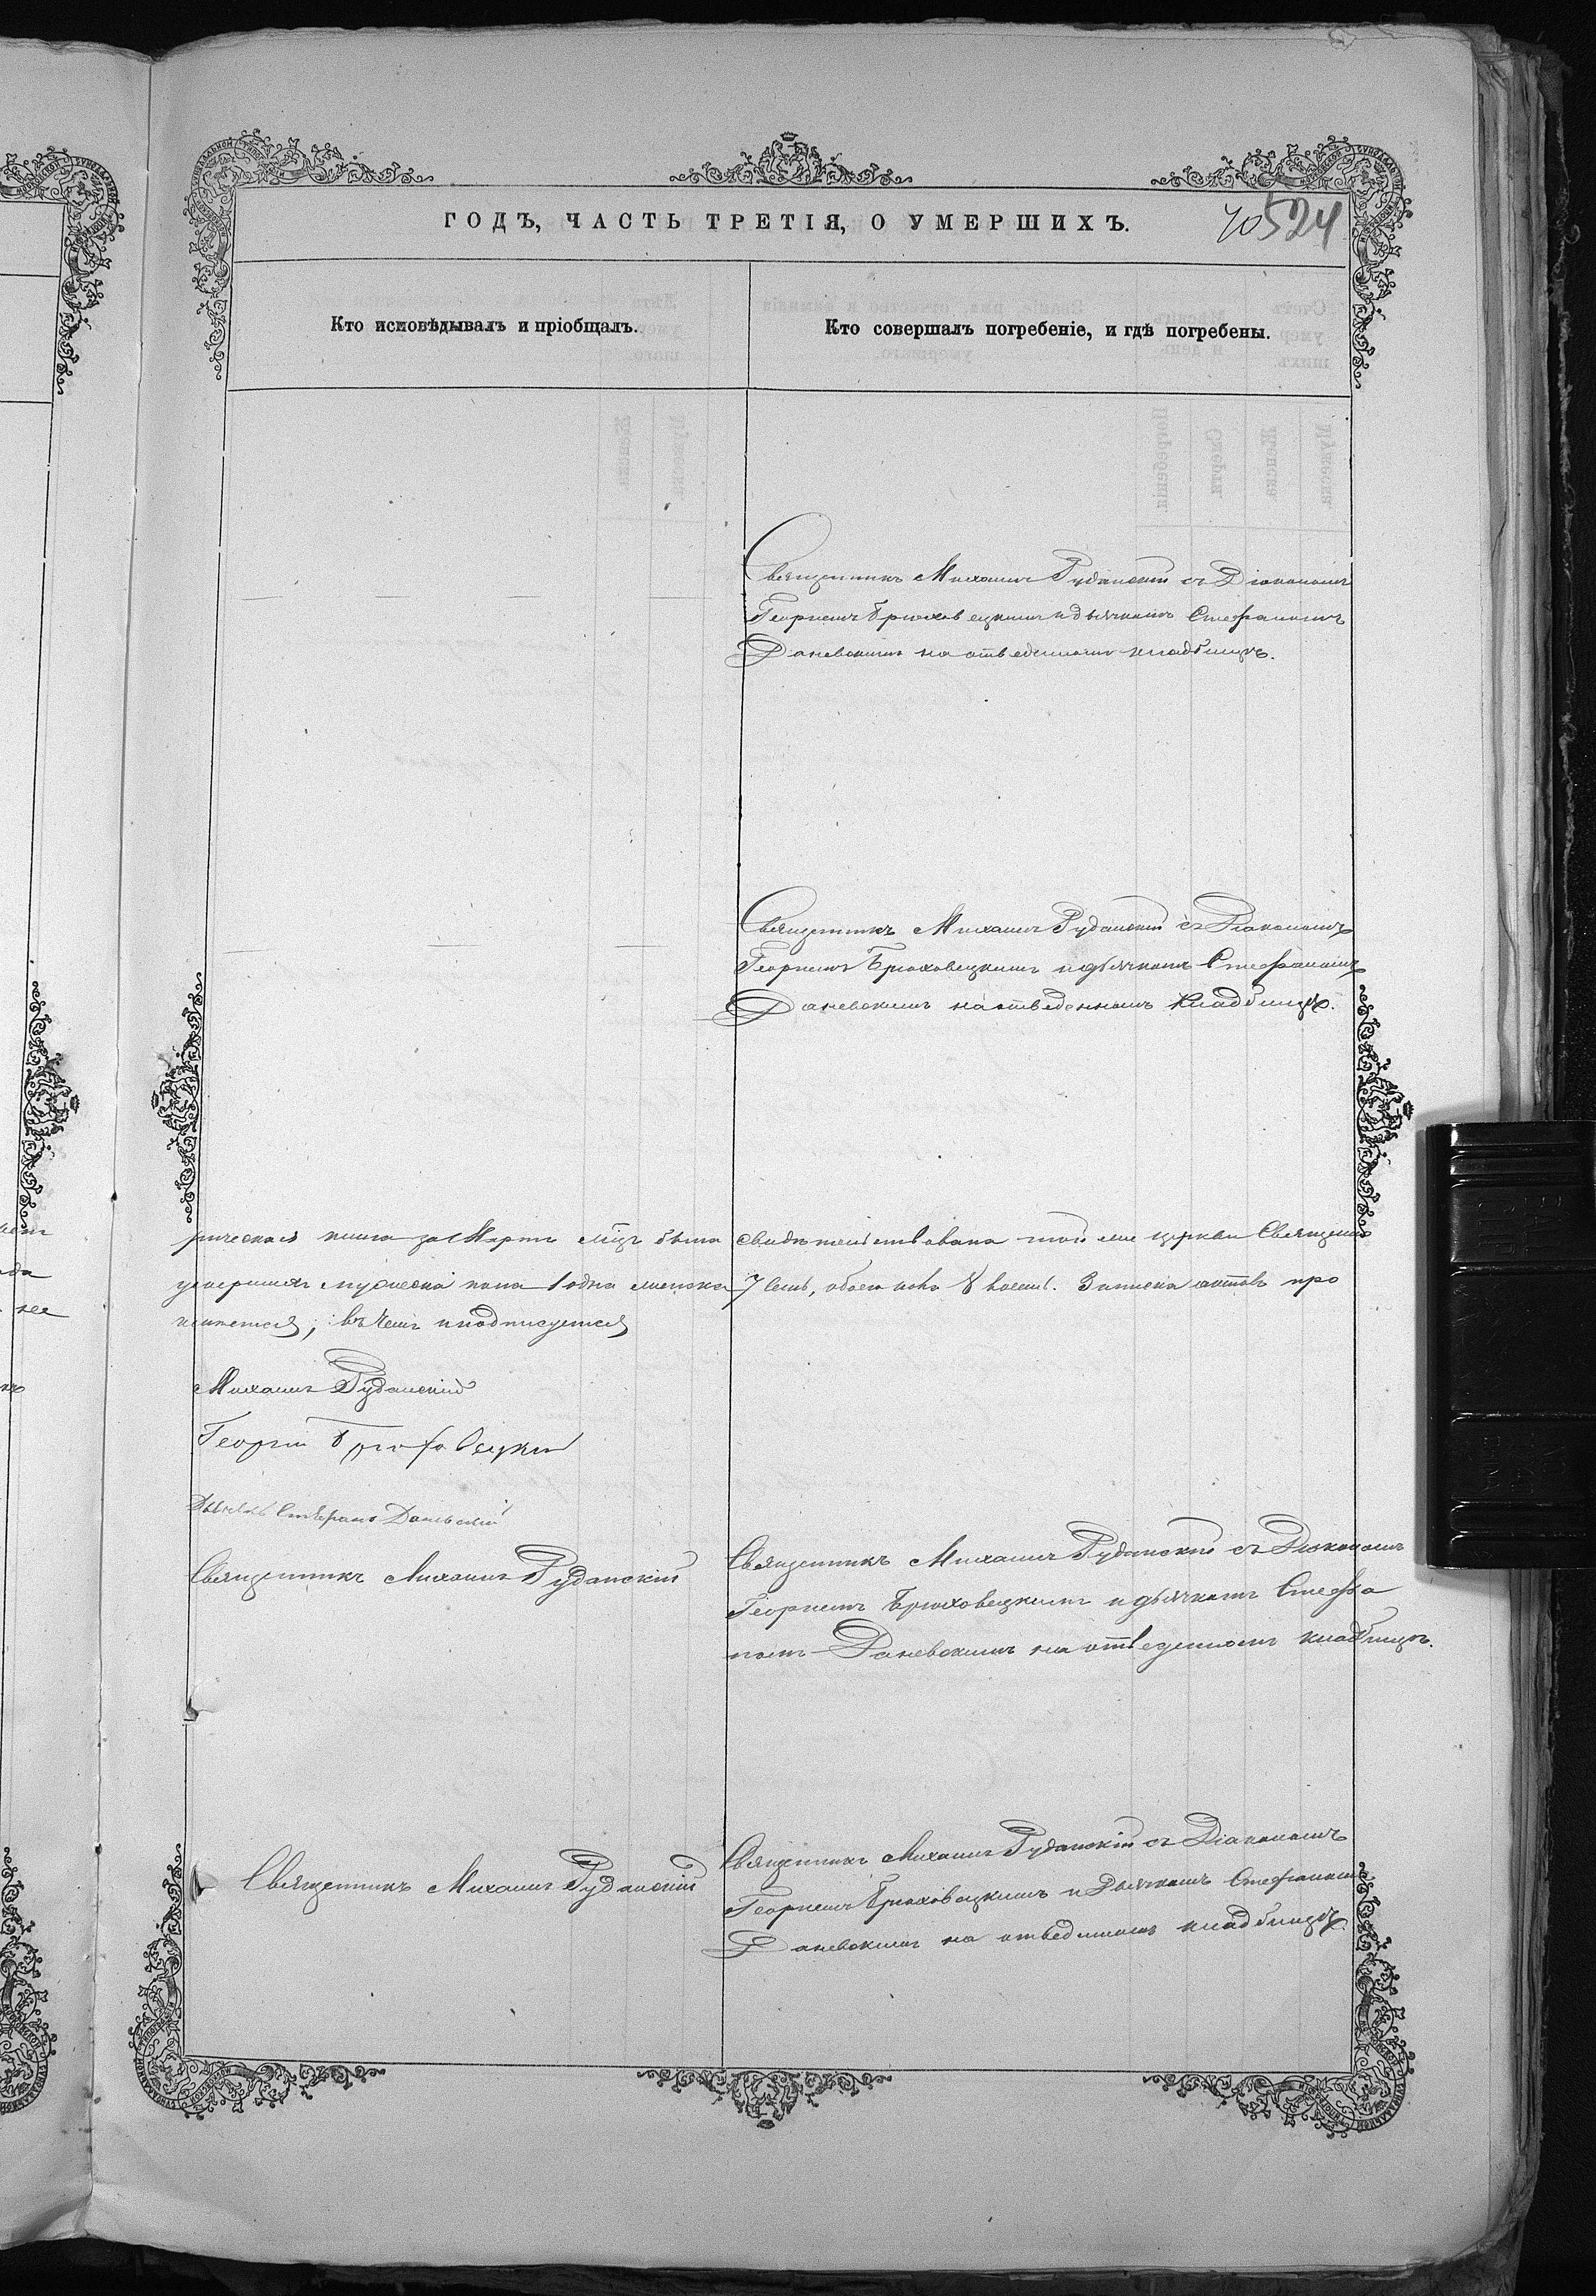 ГОДЪ, ЧАСТЬ ТРЕТІЯ, О УМЕРШИХЪ.
70 524
Кто исповѣдывалъ и пріобщалъ.
Кто совершалъ погребеніе, и гдѣ погребены.
Священникъ Михаилъ Руданскій съ Діакономъ
Георгіемъ Брюховецкимъ и дьячкомъ Стефаномъ
Даневскимъ на отведенномъ кладбищѣ.
Священникъ Михаилъ Руданскій съ Діакономъ
Георгіемъ Брюховецкимъ и дьячкомъ Стефаномъ
Даневскимъ на отведенномъ кладбищѣ.
рическая книга за Мартъ мцъ была свидѣтельствована той же церкви Священно
умершихъ мужеска пола 1 одна женска 7 семь, обоего пола 8 восемь. Записка актовъ про
; въ чемъ и подписуемся
Михаилъ Руданскій
Георгій Брюховецкій
Дьячекъ Стефанъ Даневскій
Священникъ Михаилъ Руданскій
Священникъ Михаилъ Руданскій съ Діакономъ
Георгіемъ Брюховецкимъ и дьячкомъ Стефа
номъ Даневскимъ на отведенномъ кладбищѣ.
Священникъ Михаилъ Руданскій
Священникъ Михаилъ Руданскій съ Діакономъ
Георгіемъ Брюховецкимъ и Дьячкомъ Стефаномъ
Даневскимъ на отведенномъ кладбищѣ.